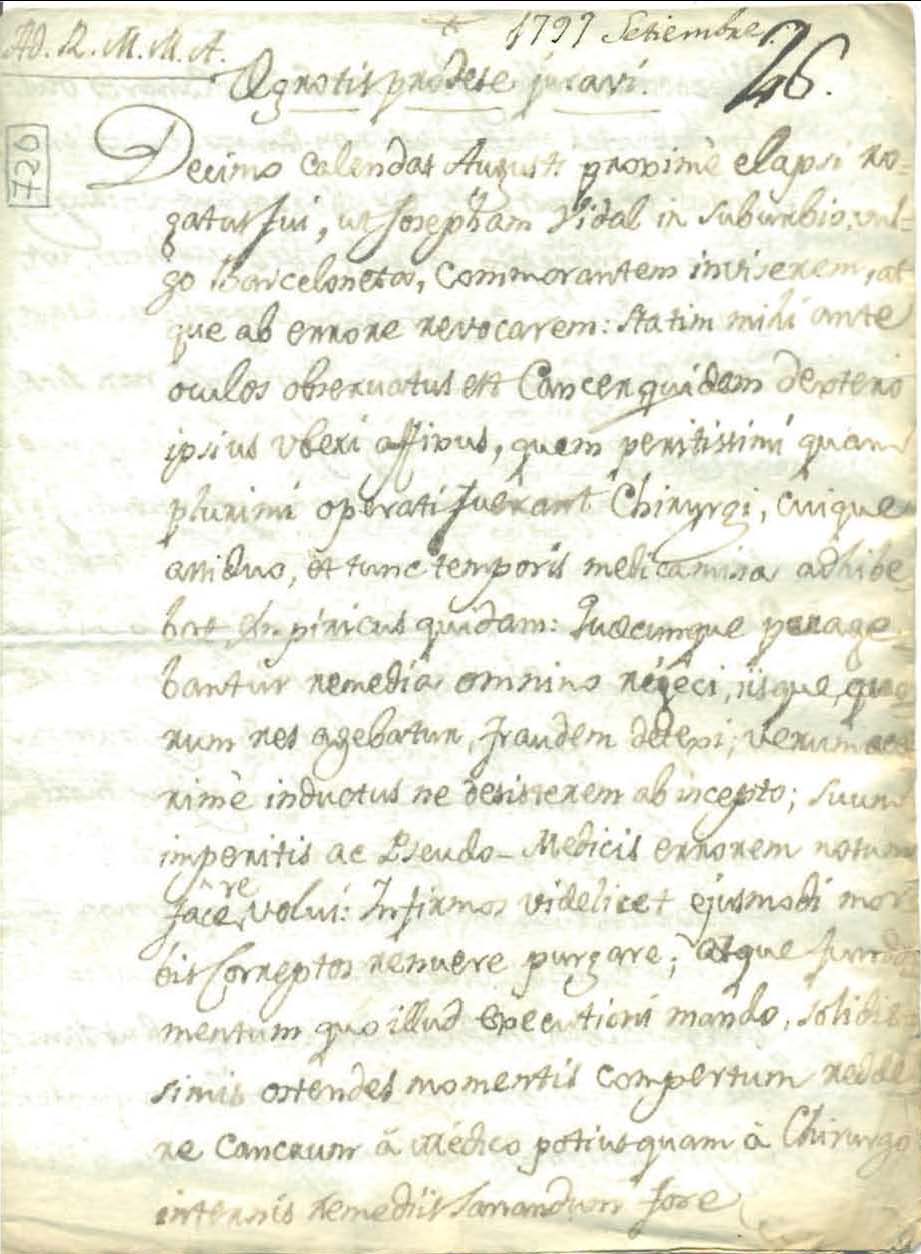 Ad. R. M. M. A.
1797 Setiembre.
26.
Ægrotis prodese juravi
720
Decimo Calendas August. proximè elapsi ro-
gatus fui, ut Josepham Vidal in suburbio, vul-
go Barceloneta, Commorantem inviserem, at
que ab errore revocarem: Statim mihi ante
oculos observatus est Cancer quidem dextero
ipsius Vberi affixus, quem peritissimi quam
plurimi operati fuerant Chirurgi, cuique
assiduo, et tunc temporis medicamina adhibe
bat Empiricus quidam: Quæcumque perage
bantur remedia omnino réjeci, iisque, quo
rum res agebatur, fraudem detexi; verum ace
rimè inductus ne desisterem ab incepto; suum
imperitis ac Pseudo-Medicis errorem notum
facere volui: Infirmos videlicet ejusmodi mor
bis Correptos renuere purgare; atque funda
mentum quo illud Executioni mando, solidis
simis ostendes momentis compertum redde
re Cancrum à Médico potius quam à Chirurgo
internis remediis Sanandum fore